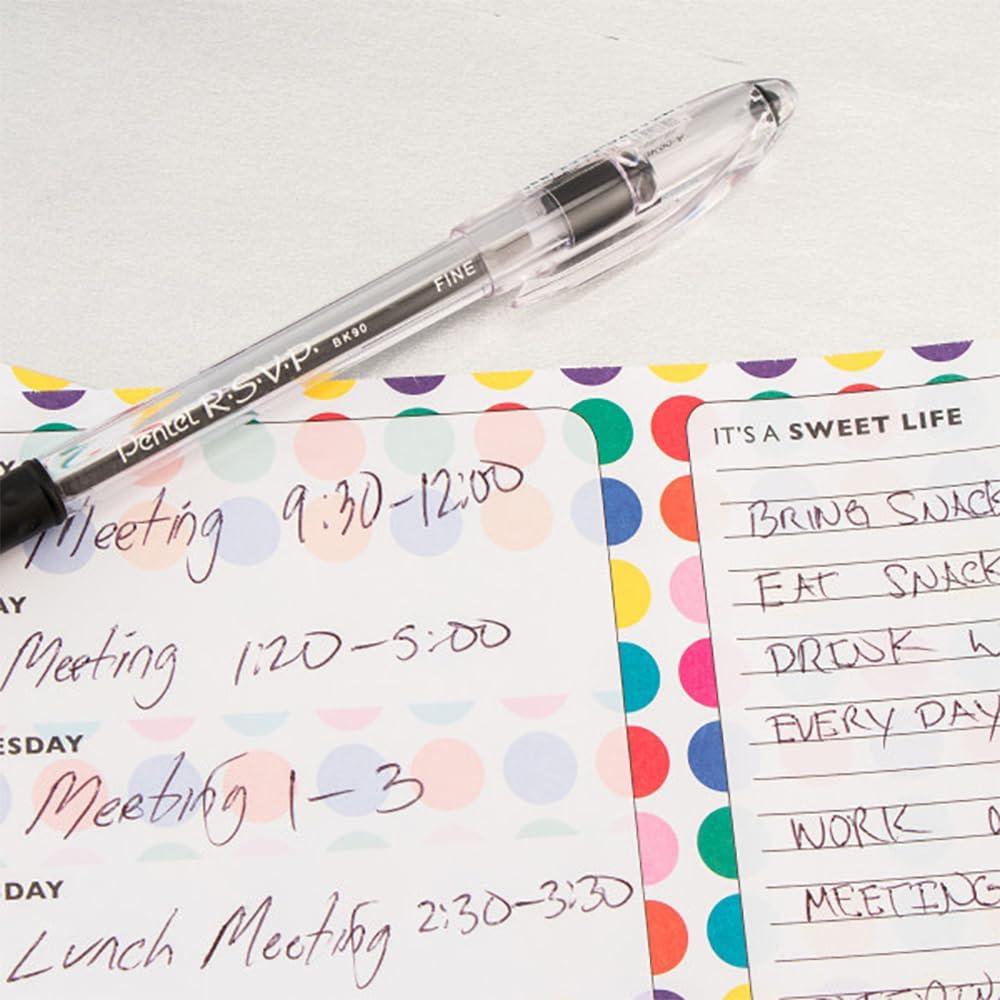 FINE
BK90
Pentel R.S.V.P.
Y
Meeting 9:30-12:00
AY
Meeting 1:20-5:00
ESDAY
Meeting 1-3
SDAY
Lunch Meeting 2:30-3:30
IT'S A SWEET LIFE
BRING SNACK
EAT SNACK
DRINK W
EVERY DAY
WORK
MEETING